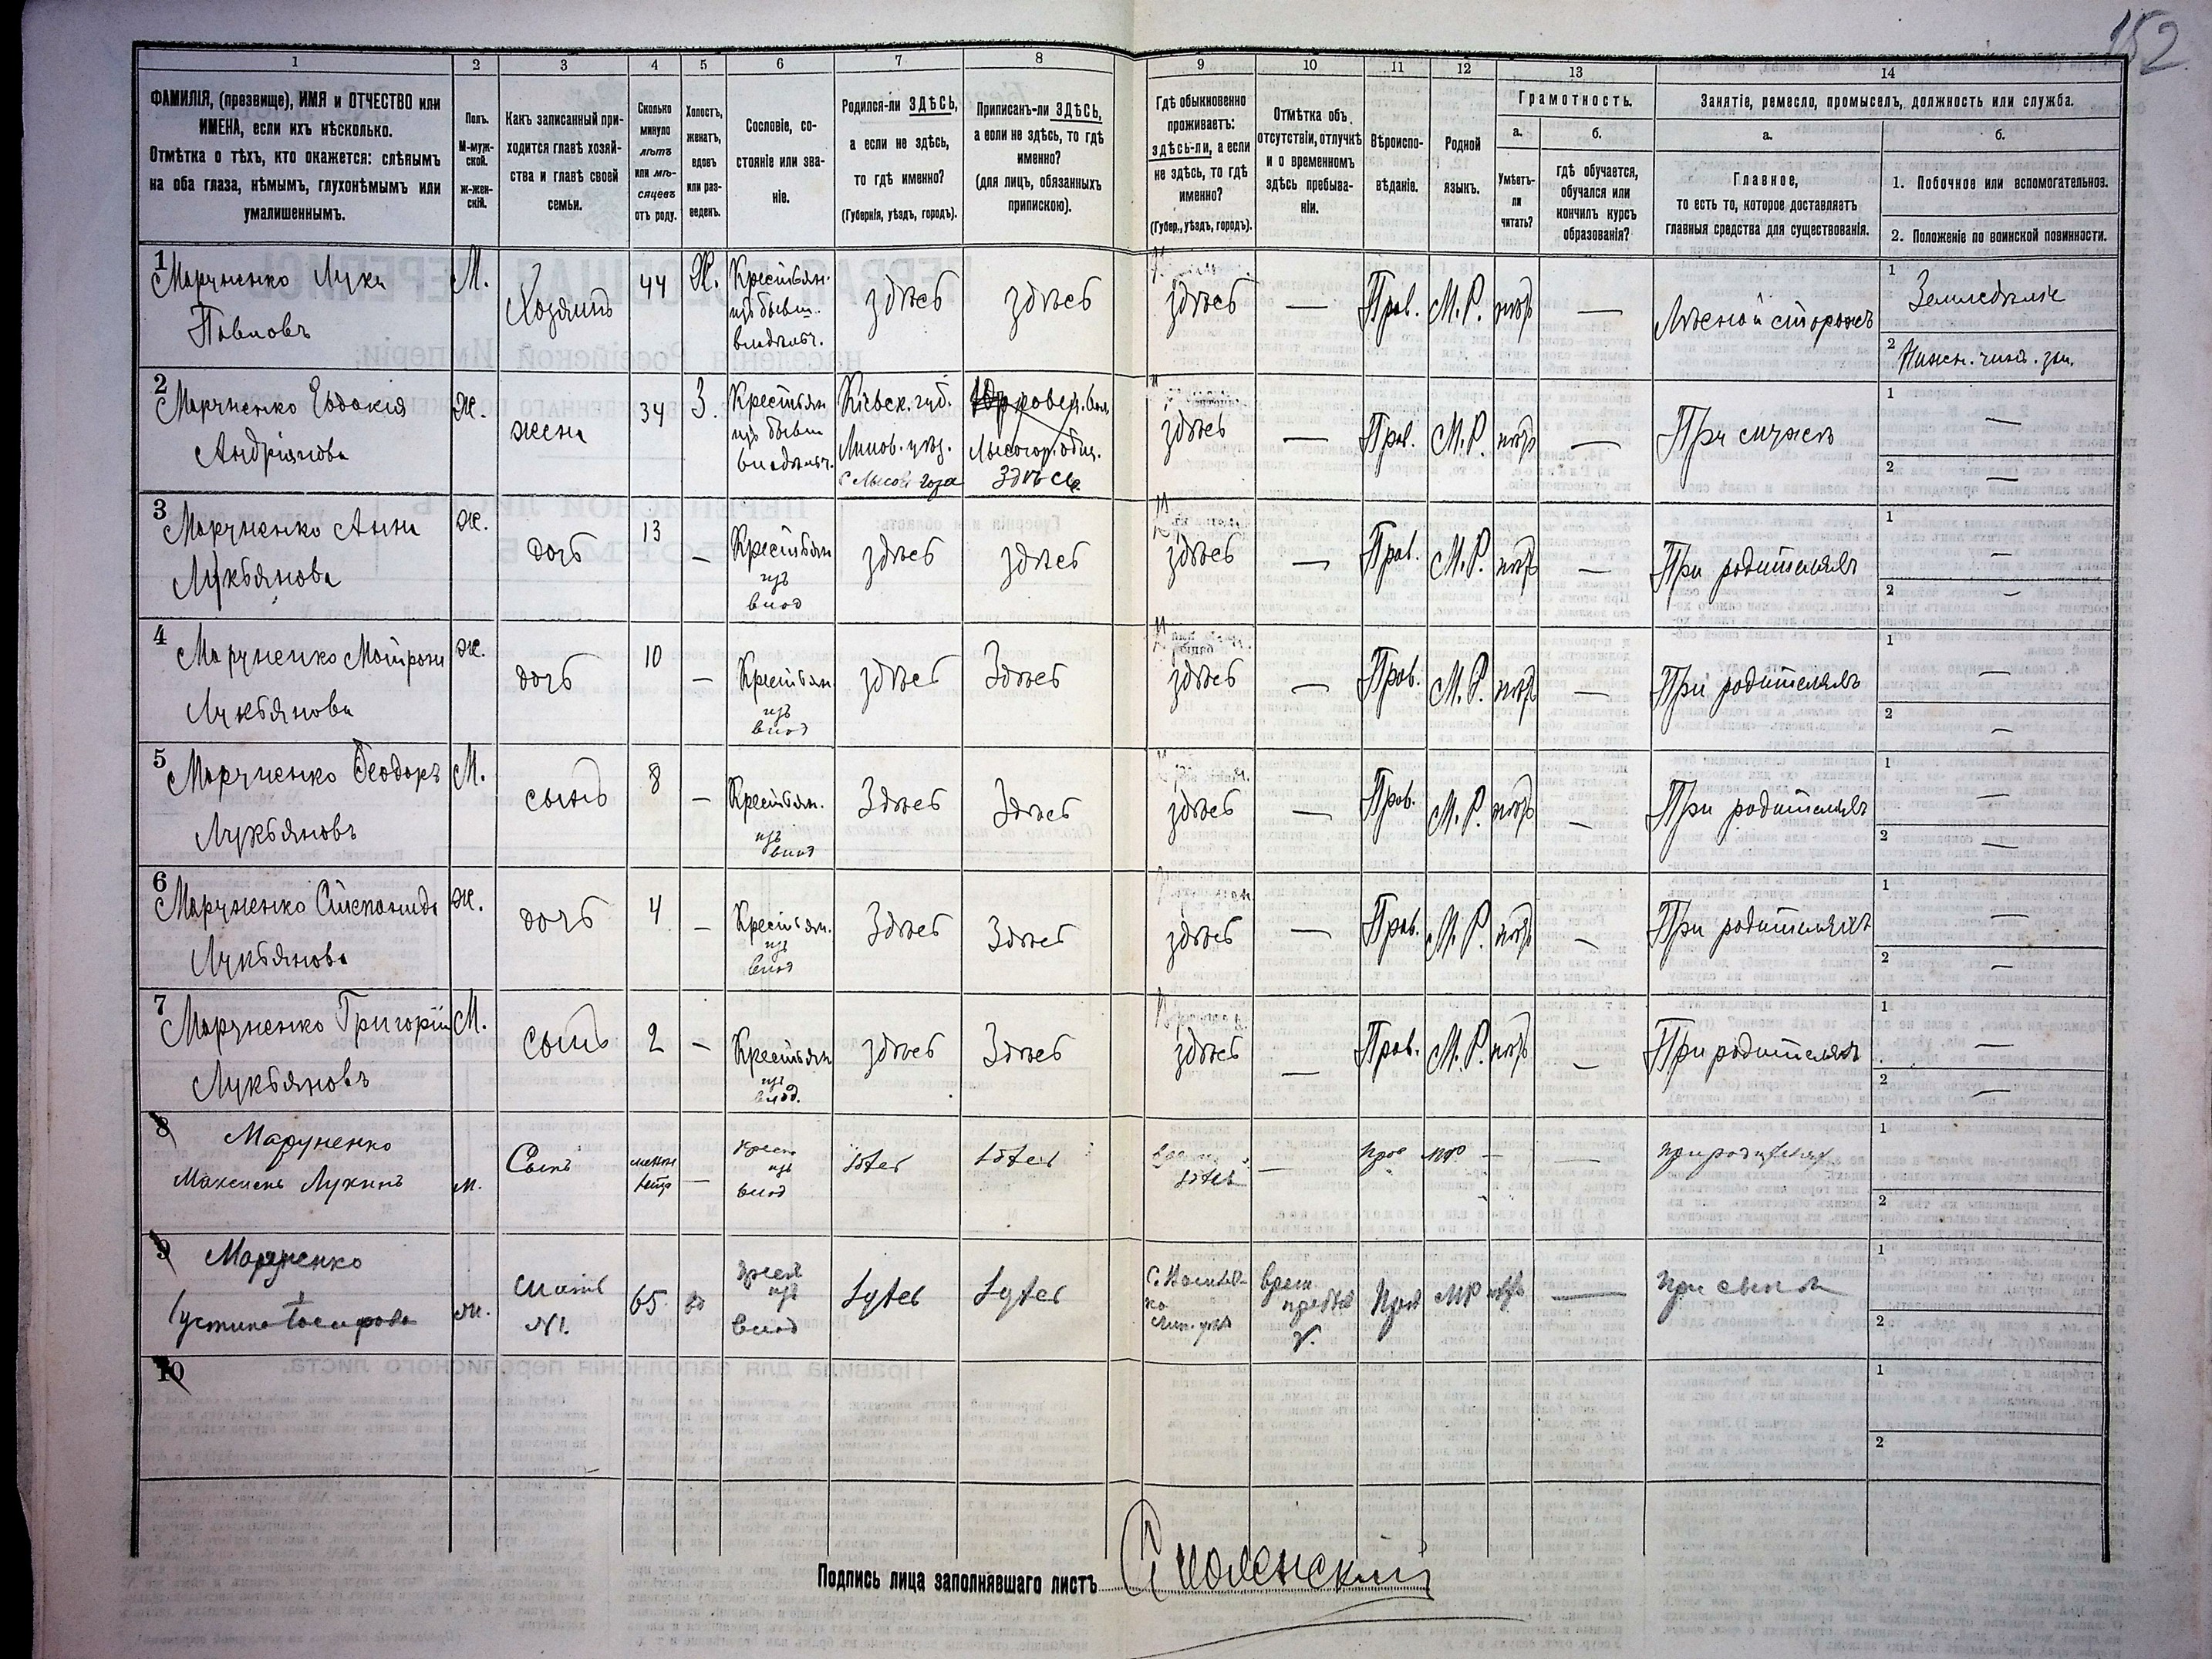 152
1 2 3 4 5 6 7 8 9 10 11 12 13 14
ФАМИЛІЯ, (прозвище), ИМЯ и ОТЧЕСТВО или
ИМЕНА, если ихъ нѣсколько.
Отмѣтка о тѣхъ, кто окажется: слѣпымъ
на оба глаза, нѣмымъ, глухонѣмымъ или
умалишеннымъ.
Полъ.
М-муж-
ской.
Ж-жен-
скій.
Какъ записанный при-
ходится главѣ хозяй-
ства и главѣ своей
семьи.
Сколько
минуло
лѣтъ
или мѣ-
сяцевъ
отъ роду.
Холостъ,
женатъ,
вдовъ
или раз-
веденъ.
Сословіе, со-
стояніе или зва-
ніе.
Родился-ли ЗДѢСЬ,
а если не здѣсь,
то гдѣ именно?
(Губернія, уѣздъ, городъ).
Приписанъ-ли ЗДѢСЬ,
а если не здѣсь, то гдѣ
именно?
(для лицъ, обязанныхъ
припискою).
Гдѣ обыкновенно
проживаетъ:
здѣсь-ли, а если
не здѣсь, то гдѣ
именно?
(Губер., уѣздъ, городъ).
Отмѣтка объ
отсутствіи, отлучкѣ
и о временномъ
здѣсь пребыва-
ніи.
Вѣроиспо-
вѣданіе.
Родной
языкъ.
Грамотность.
а.
Умѣетъ-
ли
читать?
б.
гдѣ обучается,
обучался или
кончилъ курсъ
образованія?
Занятіе, ремесло, промыселъ, должность или служба.
а.
Главное,
то есть то, которое доставляетъ
главныя средства для существованія.
б.
1. Побочное или вспомогательное.
2. Положеніе по воинской повинности.
1
Маруненко Лука
Павловъ
М. Хозяинъ 44 Ж. Крестьян.
изъ бывш.
владѣльч.
здѣсь здѣсь здѣсь — Прав. М.Р. нѣтъ — Лѣсной сторожъ
1 Земледѣліе
2 Нижн. чинъ. зап.
2
Маруненко Евдокія
Андріянова
Ж. жена 34 З. Крестьян
изъ бывш
владѣльч.
Кіевск. губ.
Липов. уѣз.
с Лысая Гора
Лысогор. общ.
Здѣсь
здѣсь — Прав. М.Р. нѣтъ — При мужѣ
1 —
2 —
3
Маруненко Анна
Лукьянова
Ж. дочь 13 — Крестьян
изъ
влад
здѣсь здѣсь здѣсь — Прав. М.Р. нѣтъ — При родителяхъ
1 —
2 —
4
Маруненко Мотрона
Лукьянова
Ж. дочь 10 — Крестьян.
изъ
влад
здѣсь Здѣсь здѣсь — Прав. М.Р. нѣтъ — При родителяхъ
1 —
2 —
5
Маруненко Ѳеодоръ
Лукьяновъ
М. сынъ 8 — Крестьян.
изъ
влад
Здѣсь Здѣсь здѣсь — Прав. М.Р. нѣтъ — При родителяхъ
1 —
2 —
6
Маруненко Степанида
Лукьянова
Ж. дочь 4 — Крестьян.
изъ
влад
Здѣсь Здѣсь здѣсь — Прав. М.Р. нѣтъ — При родителяхъ
1 —
2 —
7
Маруненко Григорій
Лукьяновъ
М. сынъ 2 — Крестьян
изъ
влад.
здѣсь Здѣсь здѣсь — Прав. М.Р. нѣтъ — При родителяхъ
1 —
2 —
8
Маруненко
Максимъ Лукинъ
м. Сынъ — Крест
изъ
влад
здѣсь здѣсь здѣсь — прав МР — — при родителях
1
2
9
Маруненко
Устина Іосифова
ж. мать
№1.
65 вд крест
изъ
влад
здѣсь здѣсь врем прав МР нѣтъ — при сынѣ
1
2
10
1
2
Подпись лица заполнявшаго листъ Смоленскій